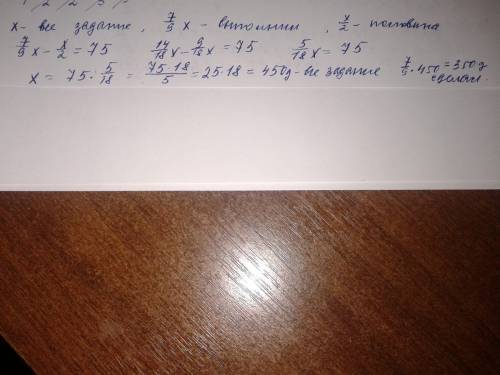 x - все задание, 7/9 x - выполнили, x/2 - половина
7/9 x - x/2 = 75 14/18 x - 9/18 x = 75 5/18 x = 75
x = 75 : 5/18 = 75·18/5 = 25·18 = 450 д - все задание 7/9 · 450 = 350 д сделали